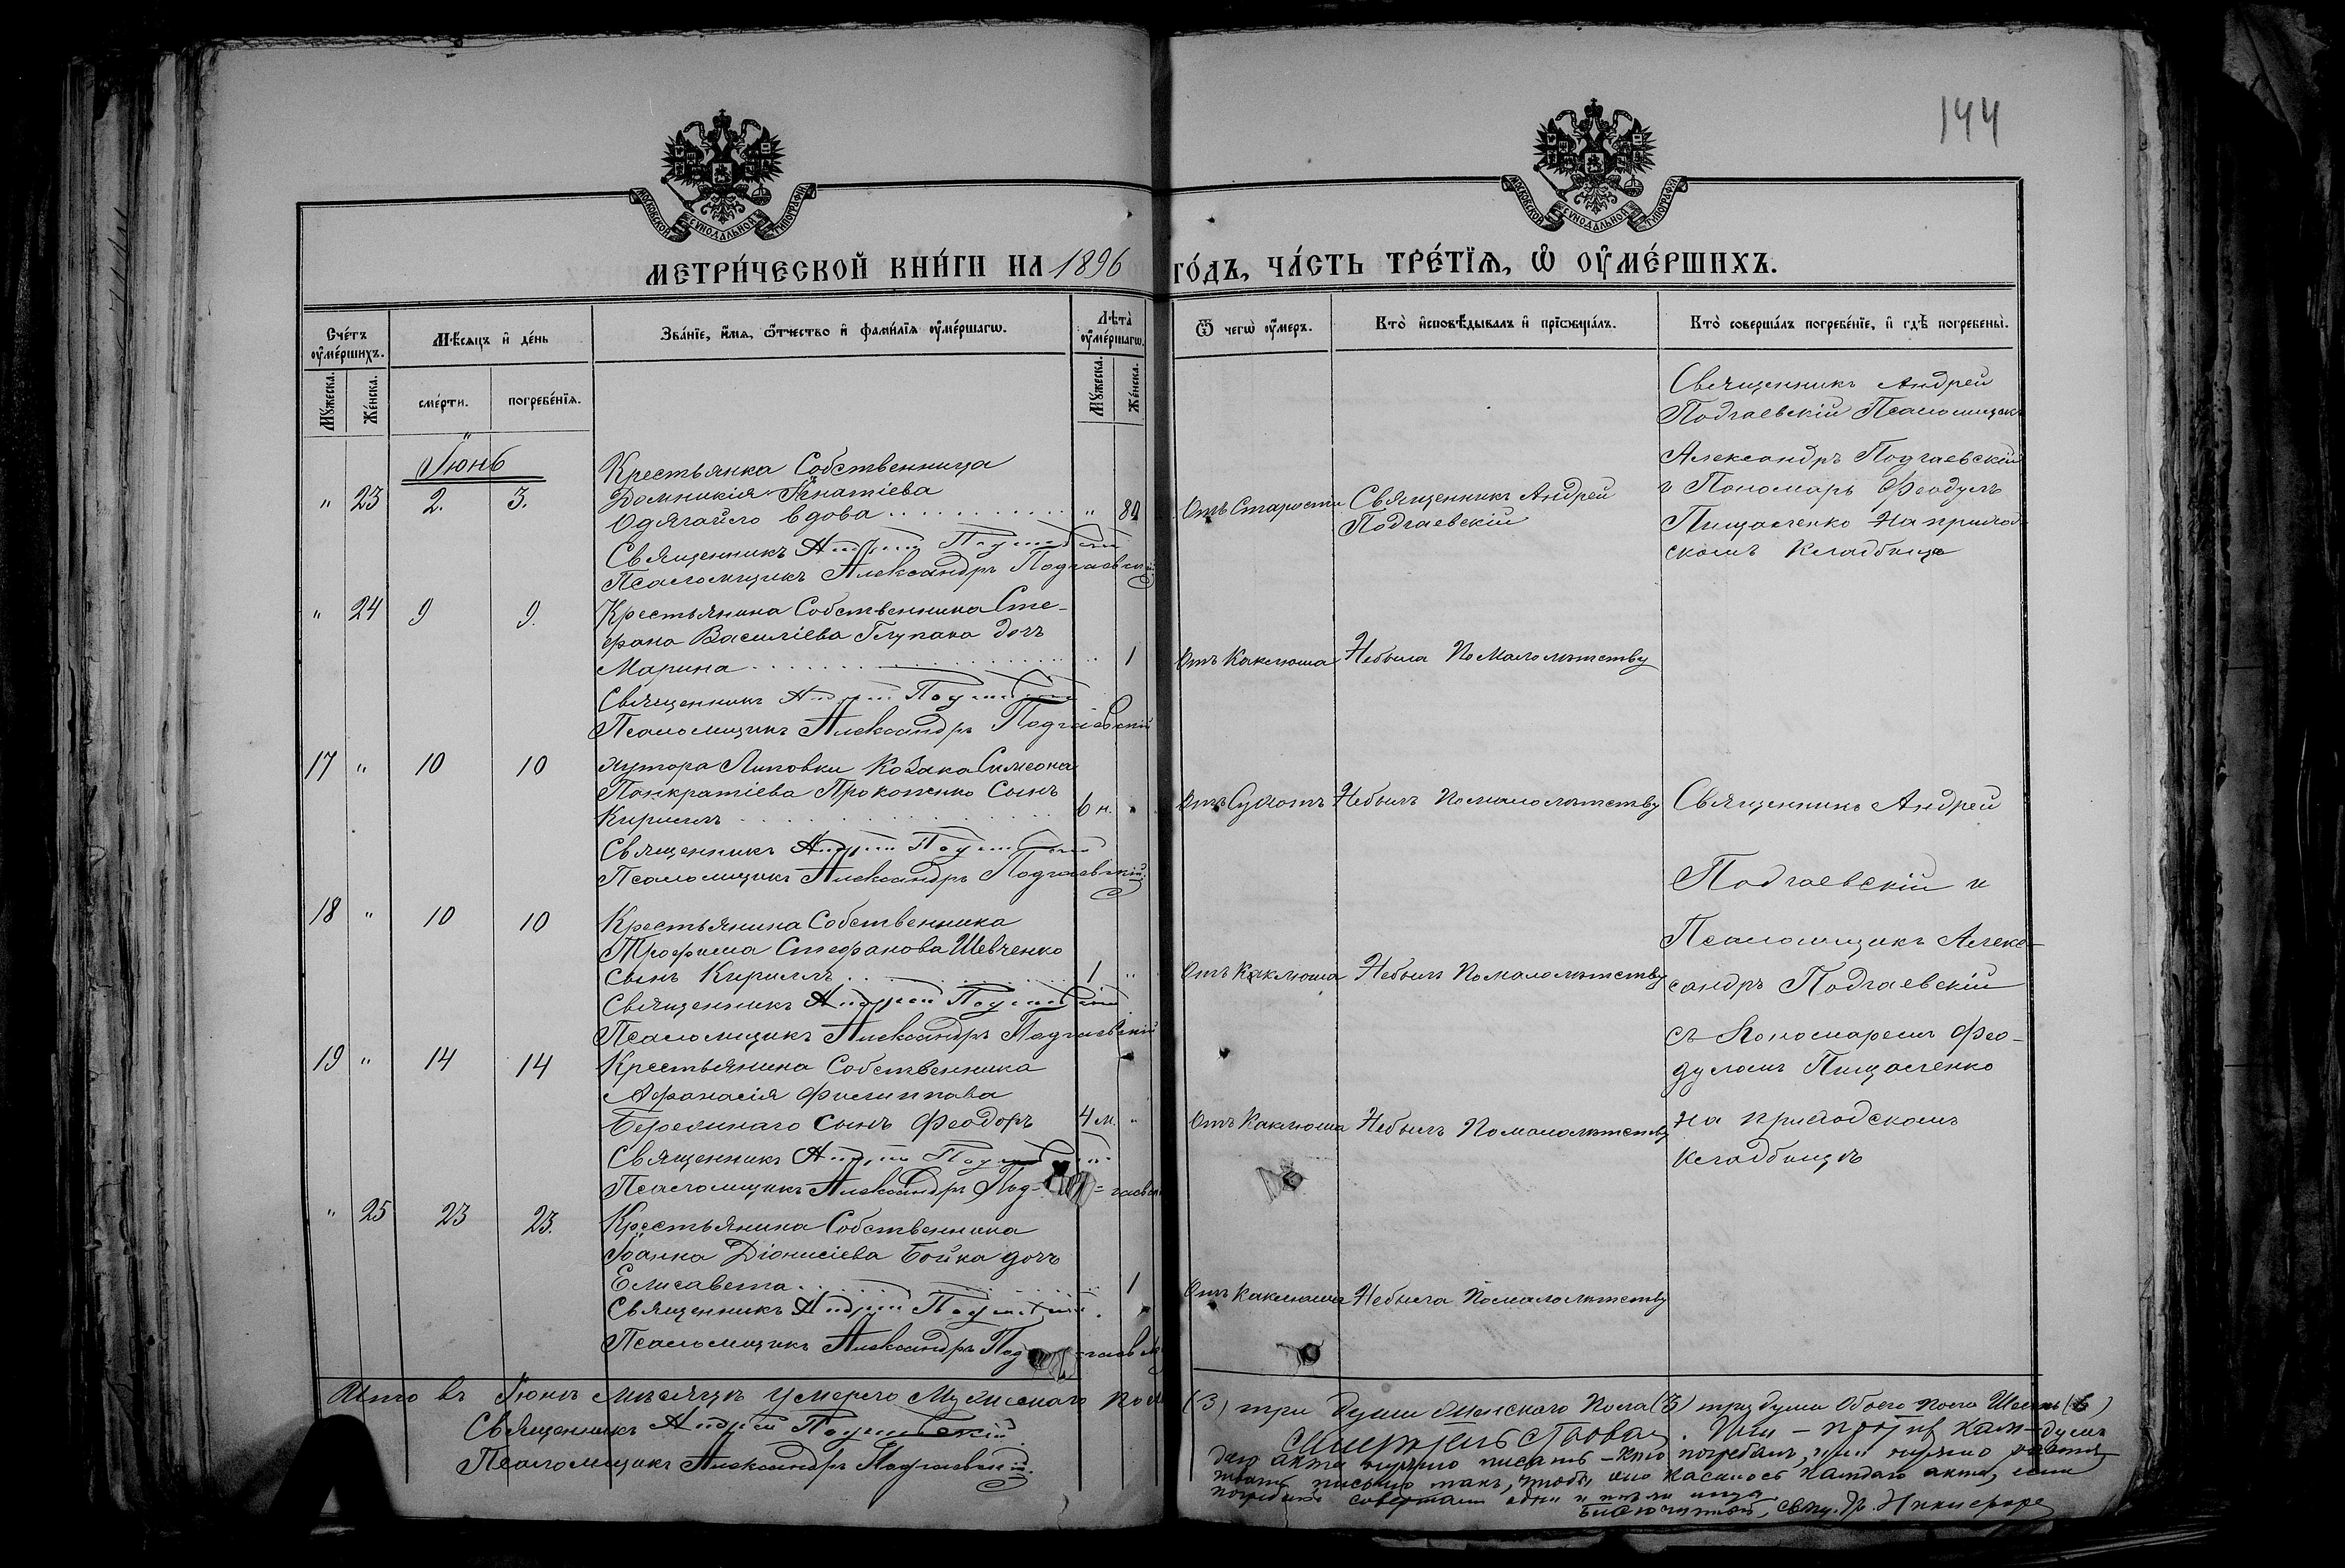 144
МОСКОВСКОЙ СѴНОДАЛЬНОЙ ТИПОГРАФІИ
МОСКОВСКОЙ СѴНОДАЛЬНОЙ ТИПОГРАФІИ
МЕТРИ́ЧЕСКОЙ КНИ́ГИ НА 1896 ГО́ДЪ, ЧА́СТЬ ТРЕ́ТЇѦ, Ѡ҆ ОУ҆МЕ́РШИХЪ.
Сче́тъ оу҆ме́ршихъ.
Мꙋ́жеска.
Же́нска.
Мѣ́сѧцъ и҆ де́нь
сме́рти.
погребе́нїѧ.
Зва́нїе, и҆́мѧ, ѻ҆́тчество и҆ фами́лїѧ оу҆ме́ршагѡ.
Лѣта̀ оу҆ме́ршагѡ.
Мꙋ́жеска.
Же́нска.
Ѿ чегѡ̀ оу҆́меръ.
Кто̀ и҆сповѣ́дывалъ и҆ прїѡбща́лъ.
Кто̀ соверша́лъ погребе́нїе, и҆ гдѣ̀ погребены̀.
Іюнь
" 23 2. 3.
Крестьянка Собственница
Домникія Игнатіева
Одягайло вдова " 80
Священникъ Андрей
Псаломщикъ Александръ Подгаевскій
Отъ Старости
Священникъ Андрей
Подгаевскій
Священникъ Андрей
Подгаевскій Псаломщикъ
Александръ Подгаевскій
и Пономарь Феодулъ
Пищаленко На приход
скомъ Кладбище
" 24 9 9.
Крестьянина Собственника Сте-
фана Василіева Глупака дочь
Марина " 1
Священникъ Андрей
Псаломщикъ Александръ Подгаевскій
Отъ Каклюша
Небыла По Малолѣтству
17 " 10 10
хутора Липовки Козака Симеона
Панкратіева Прокопенко Сынъ
Кириллъ 6 н. "
Священникъ Андрей
Псаломщикъ Александръ Подгаевскій
Отъ Сухотъ
Небылъ По малолѣтству
Священникъ Андрей
Подгаевскій и
Псаломщикъ Алек-
сандръ Подгаевскій
съ Пономаремъ Фео-
дуломъ Пищаленко
на приходскомъ
кладбищѣ
18 " 10 10
Крестьянина Собственника
Трофима Стефанова Шевченко
сынъ Кириллъ 1 "
Священникъ Андрей
Псаломщикъ Александръ Подгаевскій
Отъ Каклюша
Небылъ По малолѣтству
19 " 14 14
Крестьянина Собственника
Афанасія Филиппова
сынъ Феодоръ 4 м. "
Священникъ Андрей
Псаломщикъ Александръ Под-
Отъ Каклюша
Небылъ По малолѣтству
" 25 23 23.
Крестьянина Собственника
Іоанна Діонисіева Бойка дочь
Елисавета 1
Священникъ Андрей
Псаломщикъ Александръ Под
Отъ Каклюша
Небыла По малолѣтству
Итого въ Іюнѣ мѣсяцѣ умерло Мужескаго пола (3) три души Женскаго Пола (3) три души Обоего пола Шесть (6)
Священникъ Андрей Подгаевскій
Псаломщикъ Александръ Подгаевскій.
акта нужно писать - кто погребалъ, или нужно
писано такъ, чтобы оно касалось каждаго акта, если
совершали одни и